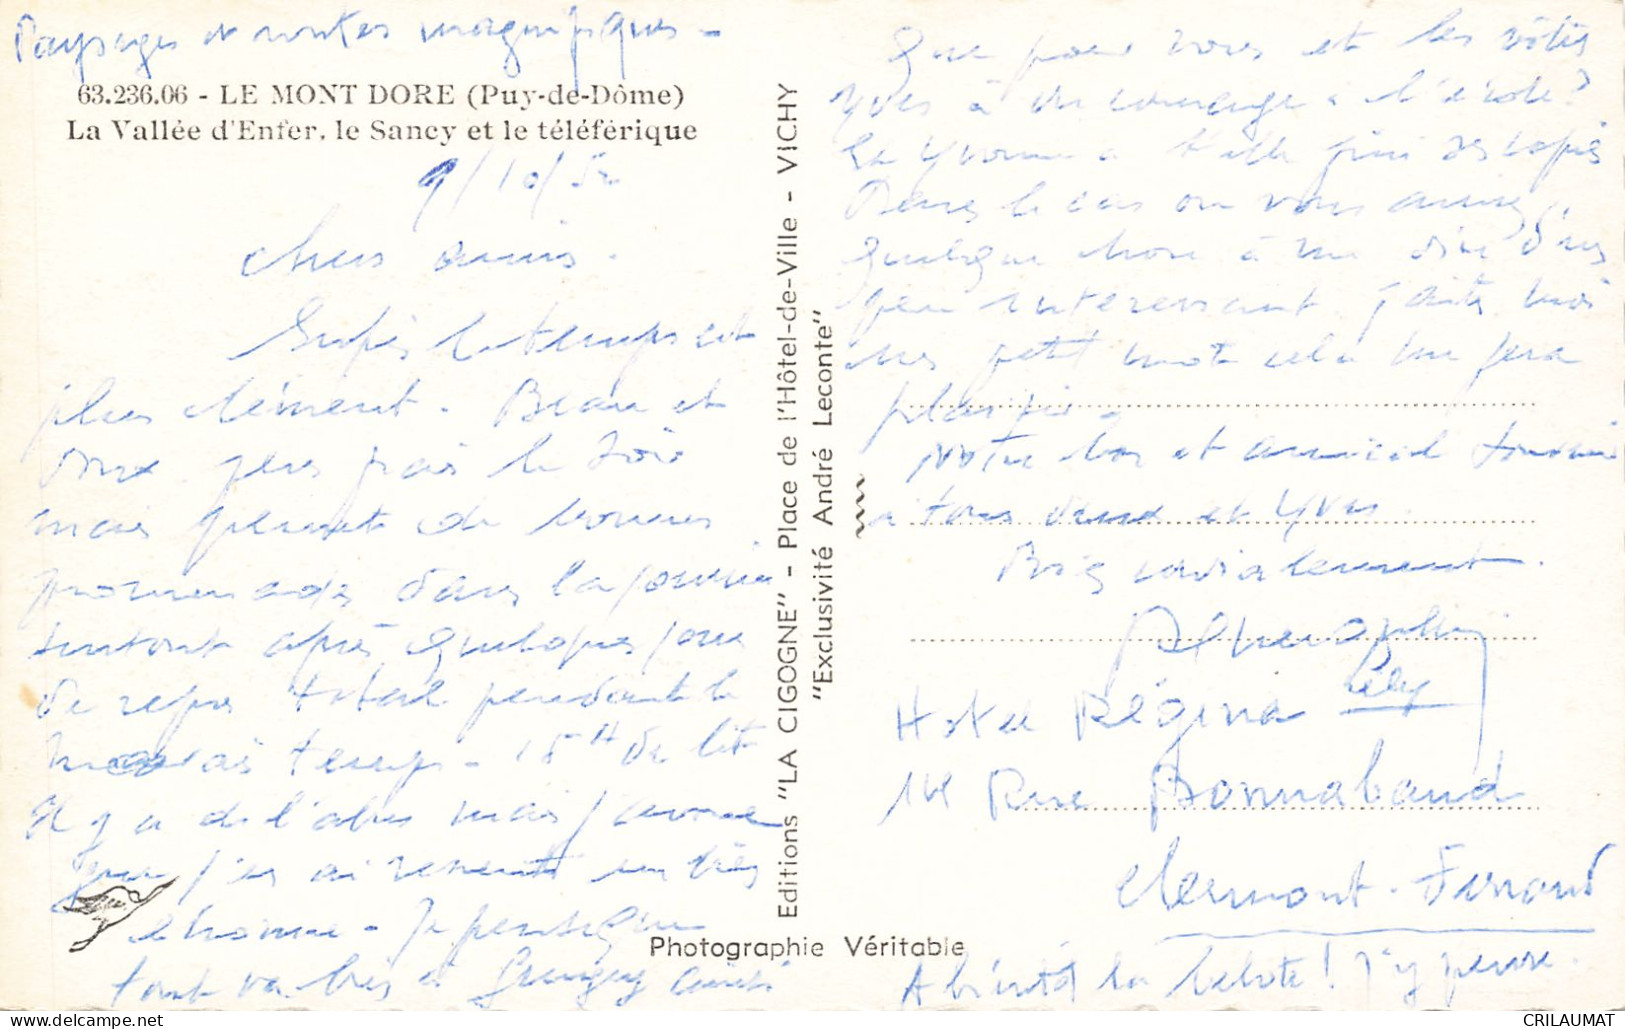 Paysages et routes magnifiques -
63.236.06 - LE MONT DORE (Puy-de-Dôme)
La Vallée d'Enfer, le Sancy et le téléférique
9/10/5
Chers amis.
le temps est
plus clément. Beau et
doux. peu frais le soir
mais permet de bonnes
promenades dans la journée
surtout après quelques jours
de repos total pendant le
mauvais temps - 15 H de lit
Il y a de l'abus mais j'avoue
que j'en ai ressenti un très
- Je pense que
tout va très à ainsi
Editions "LA CIGOGNE" - Place de l'Hôtel-de-Ville - VICHY
"Exclusivité André Leconte"
Photographie Véritable
que pour vous et les vôtres
Yves a du courage à l'école?
La Yvonne a t elle fini ses copies
Dans le cas où vous auriez
quelque chose à me dire d'un
peu intéressant faites moi
un petit mot cela me fera
plaisir.
Notre bon et amical souvenir
a tous deux et Yves.
Bien cordialement.
Hotel Régina
14 Rue Bonnabaud
Clermont-Ferrand
A bientôt la belote! J'y pense.
CRILAUMAT